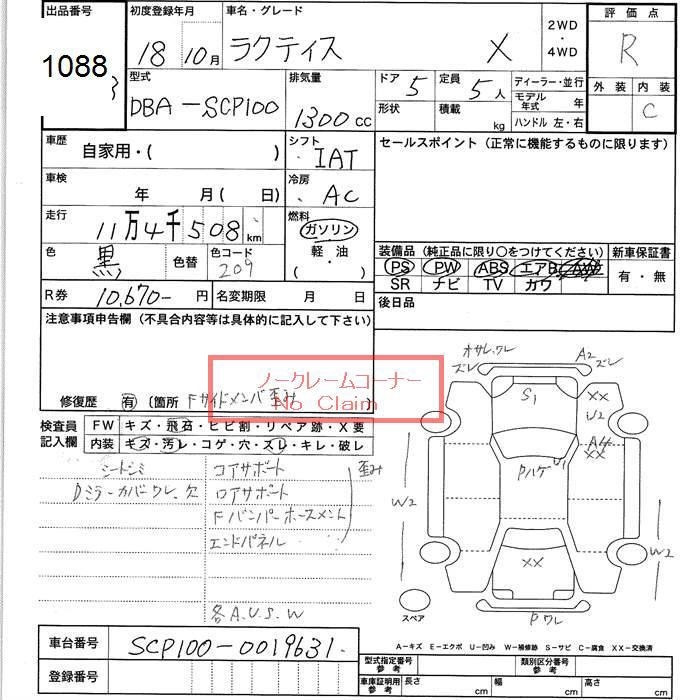 出品番号 初度登録年月 車名・グレード 2WD・4WD 評価点
1088 18 10月 ラクティス X R
型式 排気量 ドア 5 定員 5人 ディーラー・並行 外装 内装
DBA-SCP100 1300cc 形状 積載 kg モデル年式 年 C
ハンドル 左・右
車歴 自家用・( ) シフト IAT セールスポイント(正常に機能するものに限ります)
車検 年 月( 日) 冷房 AC
走行 11万4千508km 燃料 ガソリン
色 黒 色替 色コード 209 軽・油 ( )
装備品(純正品に限り○をつけてください) 新車保証書
PS PW ABS エアB AW 有・無
SR ナビ TV カワ
R券 10,670- 円 名変期限 月 日 後日品
注意事項申告欄(不具合内容等は具体的に記入して下さい)
ノークレームコーナー
No Claim
修復歴 有 〔箇所 Fサイドメンバ歪み
検査員記入欄 FW キズ・飛石・ヒビ割・リペア跡・X要
内装 キズ・汚レ・コゲ・穴・スレ・キレ・破レ
シートシミ コアサポート 歪み
Dミラーカバーワレ、欠 ロアサポート
Fバンパーホースメント
エンドパネル
各A.U.S.W
オサレ、ワレ
ズレ A2 ズレ
S1 XX
U2
PハゲU1 A4
XX
W2 W2
XX
スペア Pワレ
車台番号 SCP100-0019631.
登録番号
A-キズ E-エクボ U-凹み W-補修跡 S-サビ C-腐食 XX-交換済
型式指定番号 参考 類別区分番号 参考
車庫証明用 参考 長さ cm 幅 cm 高さ cm